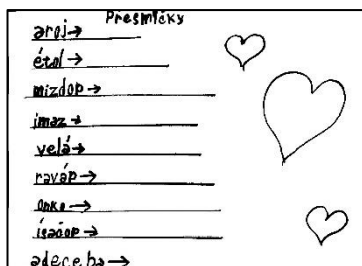 Přesmičky
aroj→
étol→
mizdop→
imaz→
velá→
raváp→
onko→
ísačop→
adeceba→